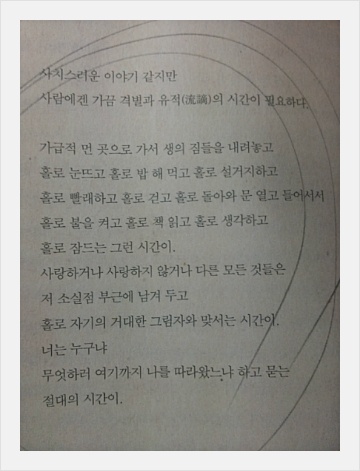 사치스러운 이야기 같지만
사람에겐 가끔 격별과 유적(流謫)의 시간이 필요하다.
가급적 먼 곳으로 가서 생의 짐들을 내려놓고
홀로 눈뜨고 홀로 밥 해 먹고 홀로 설거지하고
홀로 빨래하고 홀로 걷고 홀로 돌아와 문 열고 들어서서
홀로 불을 켜고 홀로 책 읽고 홀로 생각하고
홀로 잠드는 그런 시간이.
사랑하거나 사랑하지 않거나 다른 모든 것들은
저 소실점 부근에 남겨 두고
홀로 자기의 거대한 그림자와 맞서는 시간이.
너는 누구냐
무엇하러 여기까지 나를 따라왔느냐 하고 묻는
절대의 시간이.